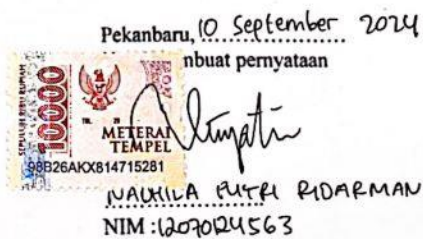 Pekanbaru, 10 September 2024
mbuat pernyataan
SEPULUH RIBU RUPIAH
10000
TGL. 20
METERAI
TEMPEL
98B26AKX814715281
PUTRI RIDARMAN
NIM : 12070124563